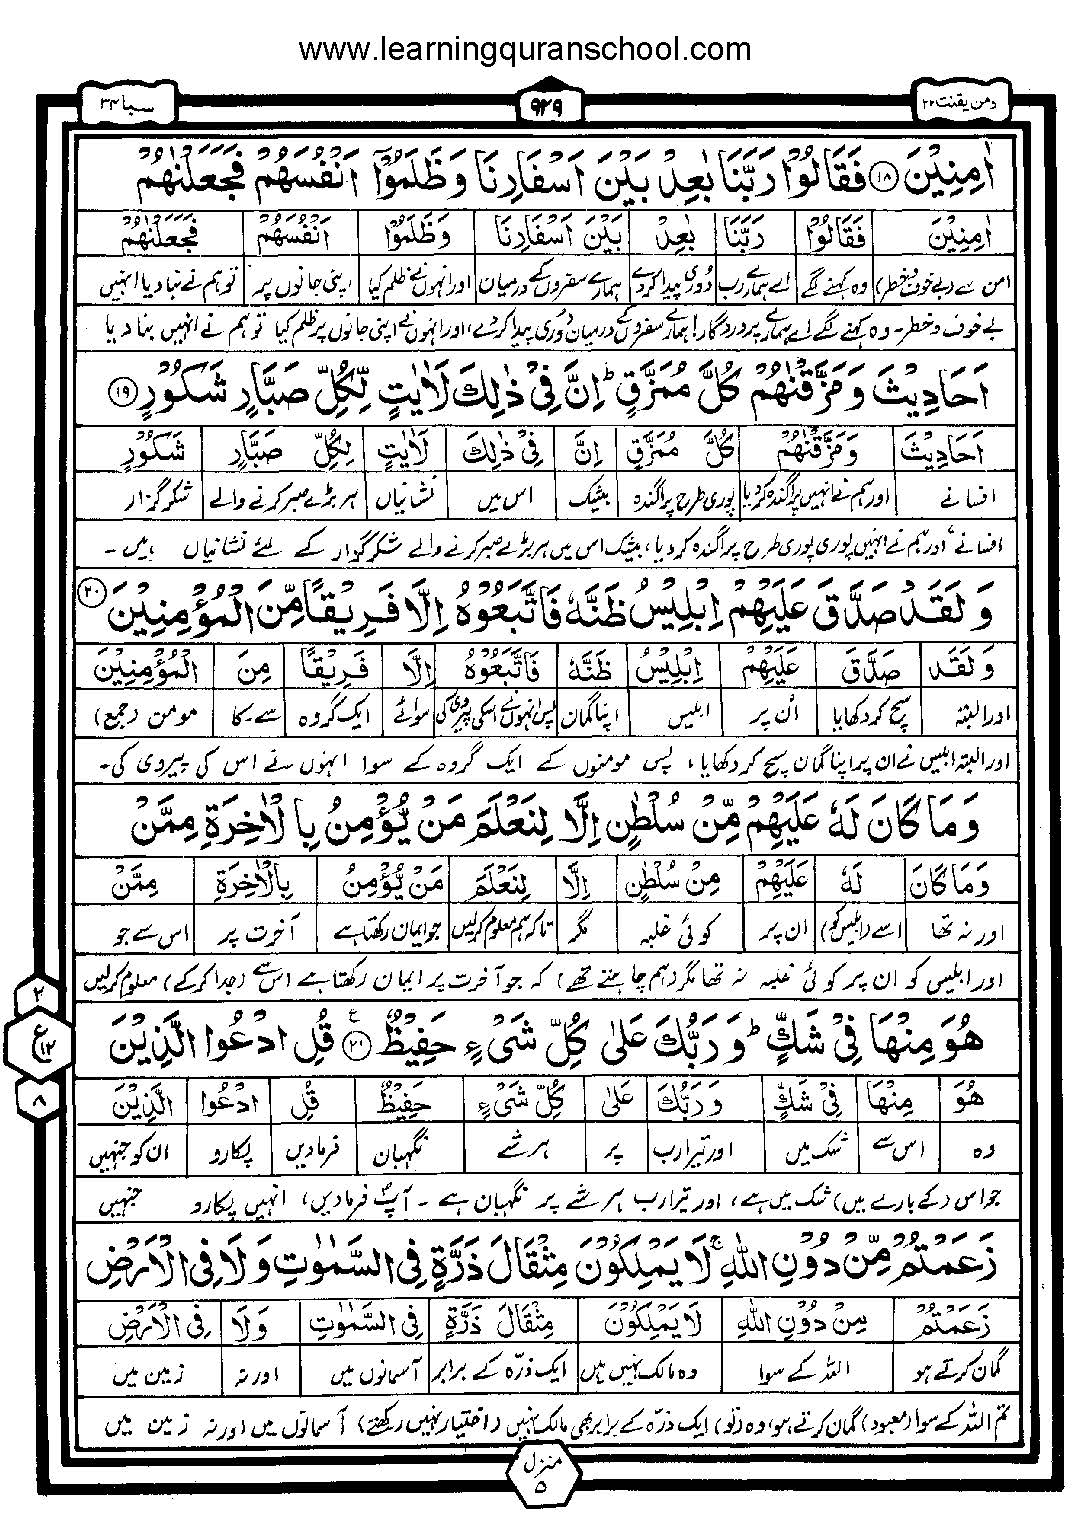 www.learningquranschool.com
ومن یقنت ۲۲ ۹۲۹ سبا ۳۴
اٰمِنِیْنَ ۱۸ فَقَالُوْا رَبَّنَا بٰعِدْ بَیْنَ اَسْفَارِنَا وَظَلَمُوْۤا اَنْفُسَهُمْ فَجَعَلْنٰهُمْ
اٰمِنِیْنَ فَقَالُوْا رَبَّنَا بٰعِدْ بَیْنَ اَسْفَارِنَا وَظَلَمُوْۤا اَنْفُسَهُمْ فَجَعَلْنٰهُمْ
امن سے (بے خوف و خطر) وہ کہنے لگے اے ہمارے رب دُوری پیدا کردے ہمارے سفروں کے درمیان اور انہوں نے ظلم کیا اپنی جانوں پر تو ہم نے بنا دیا انہیں
بے خوف و خطر۔ وہ کہنے لگے اے ہمارے پروردگار! ہمارے سفروں کے درمیان دُوری پیدا کردے، اور انہوں نے اپنی جانوں پر ظلم کیا تو ہم نے انہیں بنا دیا
اَحَادِیْثَ وَمَزَّقْنٰهُمْ كُلَّ مُمَزَّقٍ ؕ اِنَّ فِیْ ذٰلِكَ لَاٰیٰتٍ لِّكُلِّ صَبَّارٍ شَكُوْرٍ ۱۹
اَحَادِیْثَ وَمَزَّقْنٰهُمْ كُلَّ مُمَزَّقٍ اِنَّ فِیْ ذٰلِكَ لَاٰیٰتٍ لِكُلِّ صَبَّارٍ شَكُوْرٍ
افسانے اور ہم نے انہیں پراگندہ کردیا پوری طرح پراگندہ بیشک اس میں نشانیاں ہر بڑے صبر کرنے والے شکر گزار
افسانے، اور ہم نے انہیں پوری پوری طرح پراگندہ کردیا، بیشک اس میں ہر بڑے صبر کرنے والے شکر گزار کے لئے نشانیاں ہیں۔
وَلَقَدْ صَدَّقَ عَلَیْهِمْ اِبْلِیْسُ ظَنَّهٗ فَاتَّبَعُوْهُ اِلَّا فَرِیْقًا مِّنَ الْمُؤْمِنِیْنَ ۲۰
وَلَقَد صَدَّقَ عَلَیْهِمْ اِبْلِیْسُ ظَنَّهٗ فَاتَّبَعُوْهُ اِلَّا فَرِیْقًا مِنَ الْمُؤْمِنِیْنَ
اور البتہ سچ کر دکھایا اُن پر ابلیس اپنا گمان پس انہوں نے اسکی پیروی کی سوائے ایک گروہ سے۔ کا مومن (جمع)
اور البتہ ابلیس نے ان پر اپنا گمان سچ کر دکھایا، پس مومنوں کے ایک گروہ کے سوا انہوں نے اس کی پیروی کی۔
وَمَا كَانَ لَهٗ عَلَیْهِمْ مِّنْ سُلْطٰنٍ اِلَّا لِنَعْلَمَ مَنْ یُّؤْمِنُ بِالْاٰخِرَةِ مِمَّنْ
وَمَا كَانَ لَهٗ عَلَیْهِمْ مِنْ سُلْطٰنٍ اِلَّا لِنَعْلَمَ مَنْ یُّؤْمِنُ بِالْاٰخِرَةِ مِمَّنْ
اور نہ تھا اسے (ابلیس کو) ان پر کوئی غلبہ مگر تاکہ ہم معلوم کرلیں جو ایمان رکھتا ہے آخرت پر اس سے جو
اور ابلیس کو ان پر کوئی غلبہ نہ تھا مگر (ہم چاہتے تھے) کہ جو آخرت پر ایمان رکھتا ہے اس سے (جدا کرکے) معلوم کرلیں
۲
ع ۱۲
۸
هُوَ مِنْهَا فِیْ شَكٍّ ؕ وَرَبُّكَ عَلٰی كُلِّ شَیْءٍ حَفِیْظٌ ۲۱ ع قُلِ ادْعُوا الَّذِیْنَ
هُوَ مِنْهَا فِیْ شَكٍّ وَرَبُّكَ عَلٰی كُلِّ شَیْءٍ حَفِیْظٌ قُلِ ادْعُوا الَّذِیْنَ
وہ اس سے شک میں اور تیرا رب پر ہر شے نگہبان فرمادیں پکارو ان کو جنہیں
جو اس (کے بارے میں) شک میں ہے، اور تیرا رب ہر شے پر نگہبان ہے۔ آپؐ فرمادیں، انہیں پکارو جنہیں
زَعَمْتُمْ مِّنْ دُوْنِ اللّٰهِ ۚ لَا یَمْلِكُوْنَ مِثْقَالَ ذَرَّةٍ فِی السَّمٰوٰتِ وَلَا فِی الْاَرْضِ
زَعَمْتُمْ مِنْ دُوْنِ اللّٰهِ لَا یَمْلِكُوْنَ مِثْقَالَ ذَرَّةٍ فِی السَّمٰوٰتِ وَلَا فِی الْاَرْضِ
گمان کرتے ہو اللہ کے سوا وہ مالک نہیں ہیں ایک ذرّہ کے برابر آسمانوں میں اور نہ زمین میں
تم اللہ کے سوا (معبود) گمان کرتے ہو، وہ (تو) ایک ذرّہ کے برابر بھی مالک نہیں (اختیار نہیں رکھتے) آسمانوں میں اور نہ زمین میں
منزل
۵